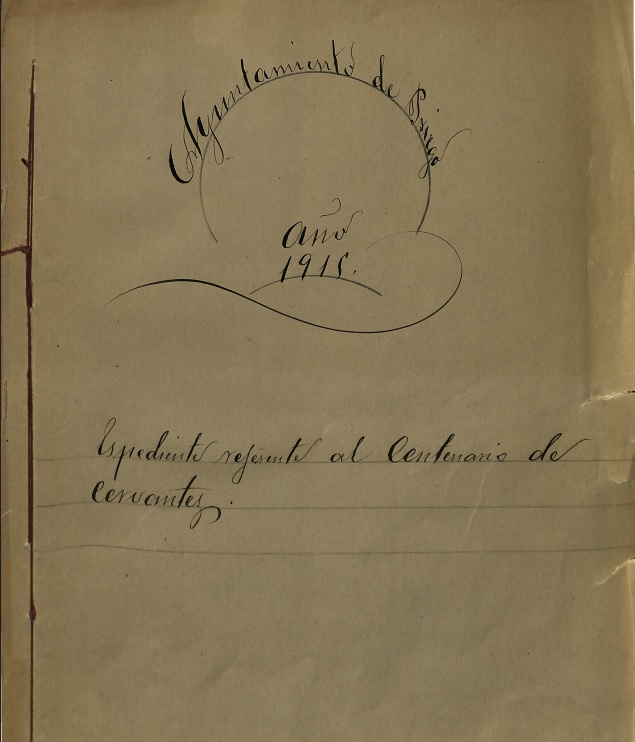 Ayuntamiento de Priego
Año
1915.
Espediente referente al Centenario de
Cervantes.